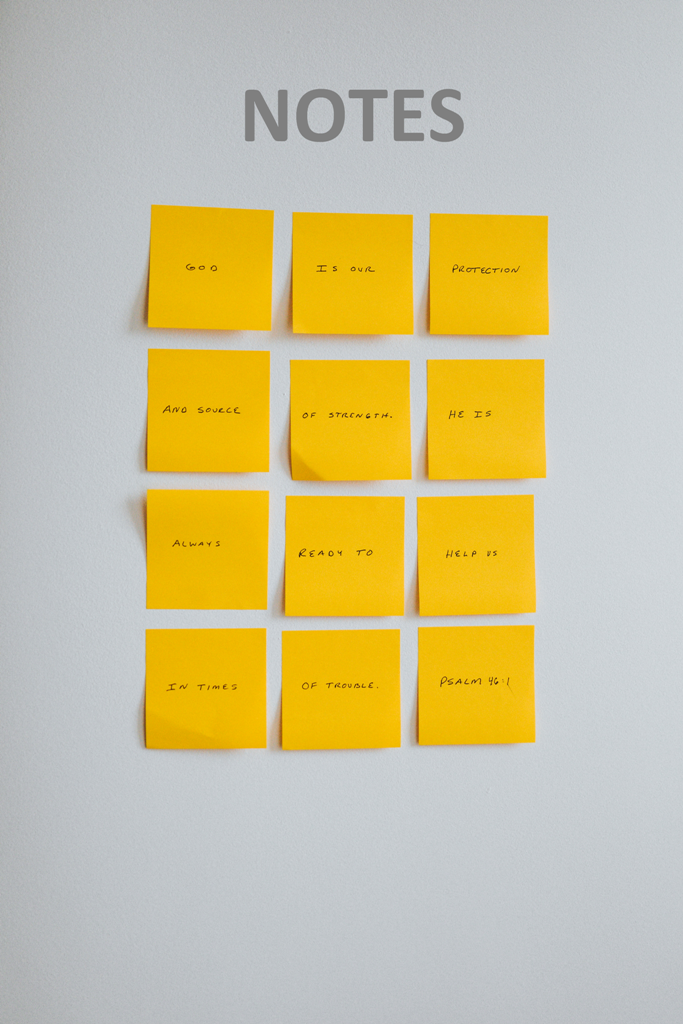 NOTES
GOD
IS OUR
PROTECTION
AND SOURCE
OF STRENGTH.
HE IS
ALWAYS
READY TO
HELP US
IN TIMES
OF TROUBLE.
PSALM 46:1